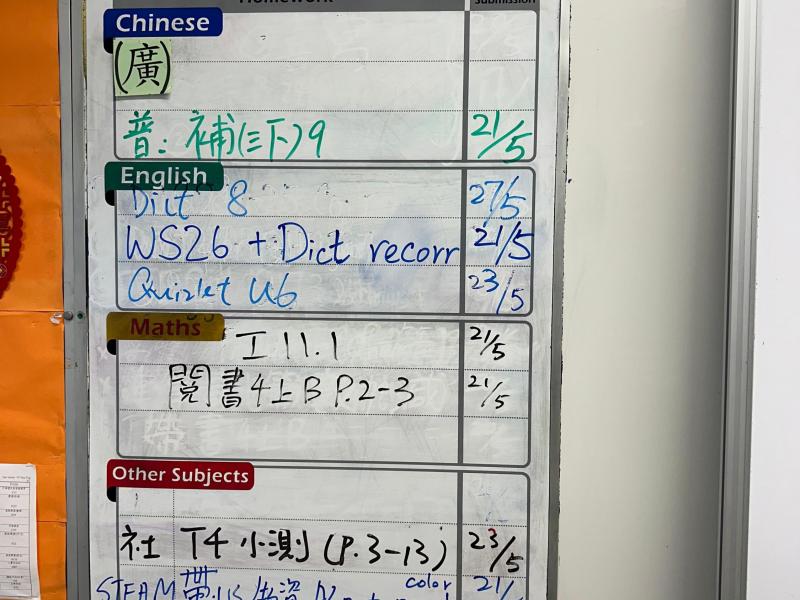 Homework Submission
Chinese
(廣)
普: 補(三下)9 21/5
English
Dict 8 27/5
WS26 + Dict recorr 21/5
Quizlet U6 23/5
Maths
工 11.1 21/5
閱書4上B P.2-3 21/5
Other Subjects
社 T4 小測 (P.3-13) 23/5
STEAM 帶 color 21/